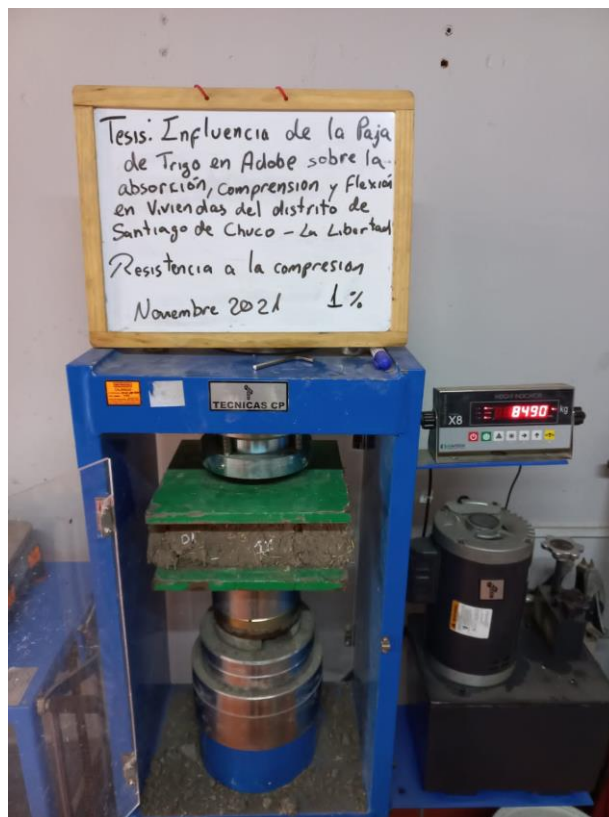 Tesis: Influencia de la Paja
de Trigo en Adobe sobre la
absorción, Comprension y Flexión
en Viviendas del distrito de
Santiago de Chuco - La Libertad
Resistencia a la compresion
Novembre 2021 1%
TECNICAS CP
WEIGHT INDICATOR
X8
8490 kg
01